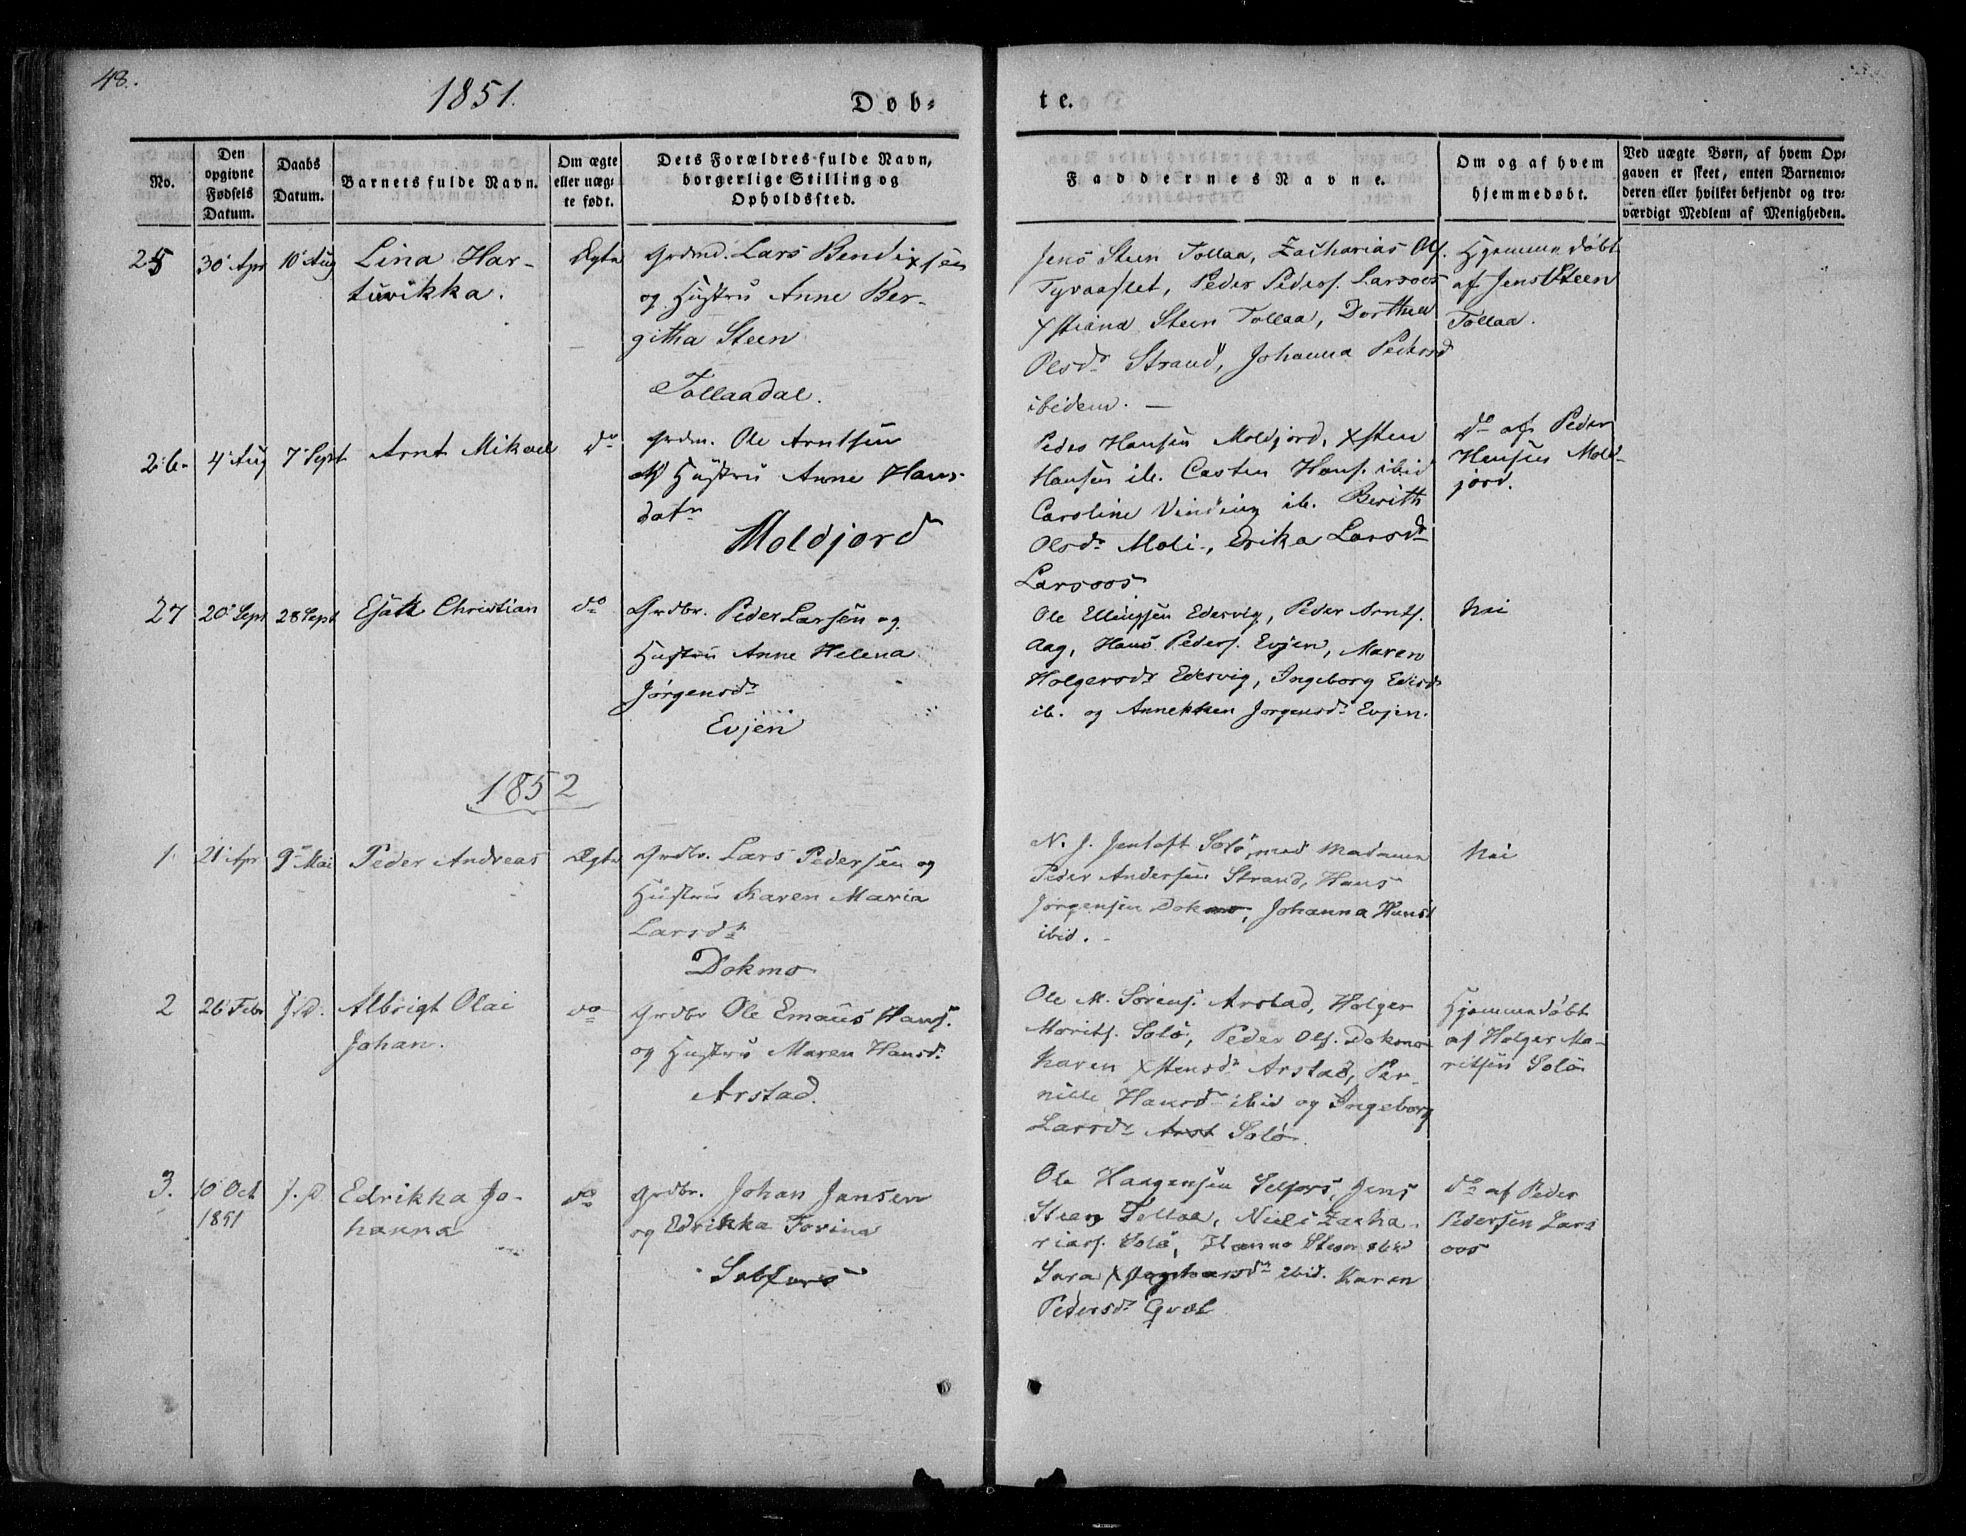 48.
1851.
Døb-
te.
No.
Den opgivne Fødsels Datum.
Daabs Datum.
Barnets fulde Navn.
Om ægte eller uægte født.
Dets Forældres fulde Navn, borgerlige Stilling og Opholdssted.
Faddernes Navne.
Om og af hvem hjemmedøbt.
Ved uægte Børn, af hvem Opgaven er skeet, enten Barnemoderen eller hvilket bekjendt og troværdigt Medlem af Menigheden.
25 30 Apr 10 Aug Lina Har-
tuvikka.
Ægte
Grdmd. Lars Bendixsen
og Hustru Anne Ber-
githa Steen
Tollaadal.
Jens Steen Tollaa, Zacharias Ols.
Peder Peders. Larsoes
Xstiana Steen Tollaa, Dorthea
Olsdr Strand, Johanna Pedersd
ibidem. —
Hjemmedøbt
af Jens Steen
Tollaa.
26. 4 Aug 7 Sept Arnt Mikael
do
Grdm. Ole Arntsen
og Hustru Anne Hans-
datr
Moldjord
Peder Hansen Moldjord, Xsten
Hansen ib. Casten Hans. ibid
Caroline Vinding ib. Berith
Olsdr Moli, Erika Larsdr
Larsoos
do af Peder
Hansen Mold-
jord.
27 20 Sept 28 Sept Christian
do
Grdbr. Peder Larsen og
Hustru Anne Helena
Jørgensdr
Evjen
Ole Ellingsen Edesvig, Peder Arnts.
Aag, Hans Peders. Evjen, Maren
Holgersdr Edesvig, Ingeborg
ib. og Annekken Jørgensdr Evjen.
Nei
1852
1 21 Apr 9 Mai Peder Andreas
Ægte
Grdbr. Lars Pedersen og
Hustru Karen Maria
Larsdr
Dokmo
N. J. Jentoft Solø, med Madame
Peder Andersen Strand, Hans
Jørgensen Dokmo, Johanna Hansd
ibid. -
Nei
2 26 Febr J. D. Albrigt Olai
Johan.
do
Grdbr Ole Emaus Hans.
og Hustru Maren Hansdr
Arstad.
Ole M. Sørens. Arstad, Holger
Morits. Solø, Peder Ols. Dokmo
Karen Xstensdr Arstad, Per-
nille Hansdr ibid og Ingeborg
Larsdr Arst Solø.
Hjemmedøbt
af Holger Mo-
ritsen Solø
3. 10 Oct
1851
J. D. Edrikka Jo-
hanna
do
Grdbr. Johan Jensen
og Edrikka Fovina
Selfors
Ole Haagensen Selfors, Jens
Steen Tollaa, Niels Zacha-
rias. Solø, Hanna Steen ibid
Sara ibid. Karen
Pedersdr Qvæl
do af Peder
Pedersen Lars
oos